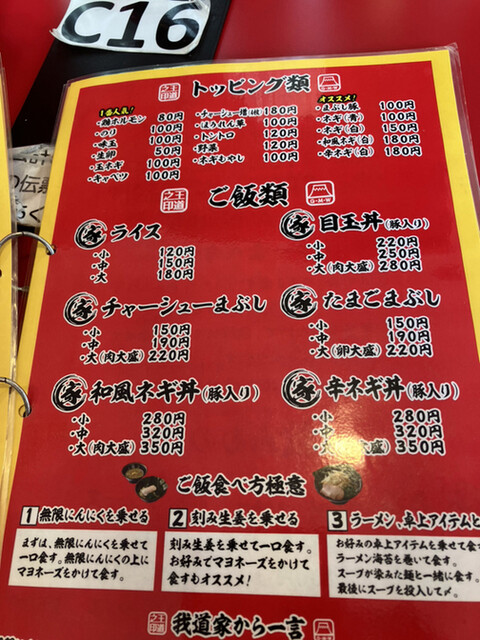 C16
トッピング類
之王印道
G·M·W
1番人気!
・鶏ホルモン 80円
・のり 100円
・味玉 100円
・生卵 50円
・玉ネギ 100円
・キャベツ 100円
・チャーシュー増(4枚) 180円
・ほうれん草 100円
・トントロ 120円
・野菜 120円
・ネギもやし 100円
オススメ!
・まぶし豚 100円
・ネギ(青) 100円
・ネギ(白) 150円
・和風ネギ(白) 180円
・辛ネギ(白) 180円
ご飯類
之王印道
G·M·W
家 ライス
・小 120円
・中 150円
・大 180円
家 目玉丼(豚入り)
・小 220円
・中 250円
・大(肉大盛) 280円
家 チャーシューまぶし
・小 150円
・中 190円
・大(肉大盛) 220円
家 たまごまぶし
・小 150円
・中 190円
・大(卵大盛) 220円
家 和風ネギ丼(豚入り)
・小 280円
・中 320円
・大(肉大盛) 350円
家 辛ネギ丼(豚入り)
・小 280円
・中 320円
・大(肉大盛) 350円
ご飯食べ方極意
1 無限にんにくを乗せる
まずは、無限にんにくを乗せて
一口食す。無限にんにくの上に
マヨネーズをかけて食す。
2 刻み生姜を乗せる
刻み生姜を乗せて一口食す。
お好みでマヨネーズをかけて
食すもオススメ!
3 ラーメン、卓上アイテムと
お好みの卓上アイテムを乗せて食
ラーメン海苔を巻いて食す。
スープが染みた麺と一緒に食す。
最後にスープを投入して〆。
之王印道
我道家から一言